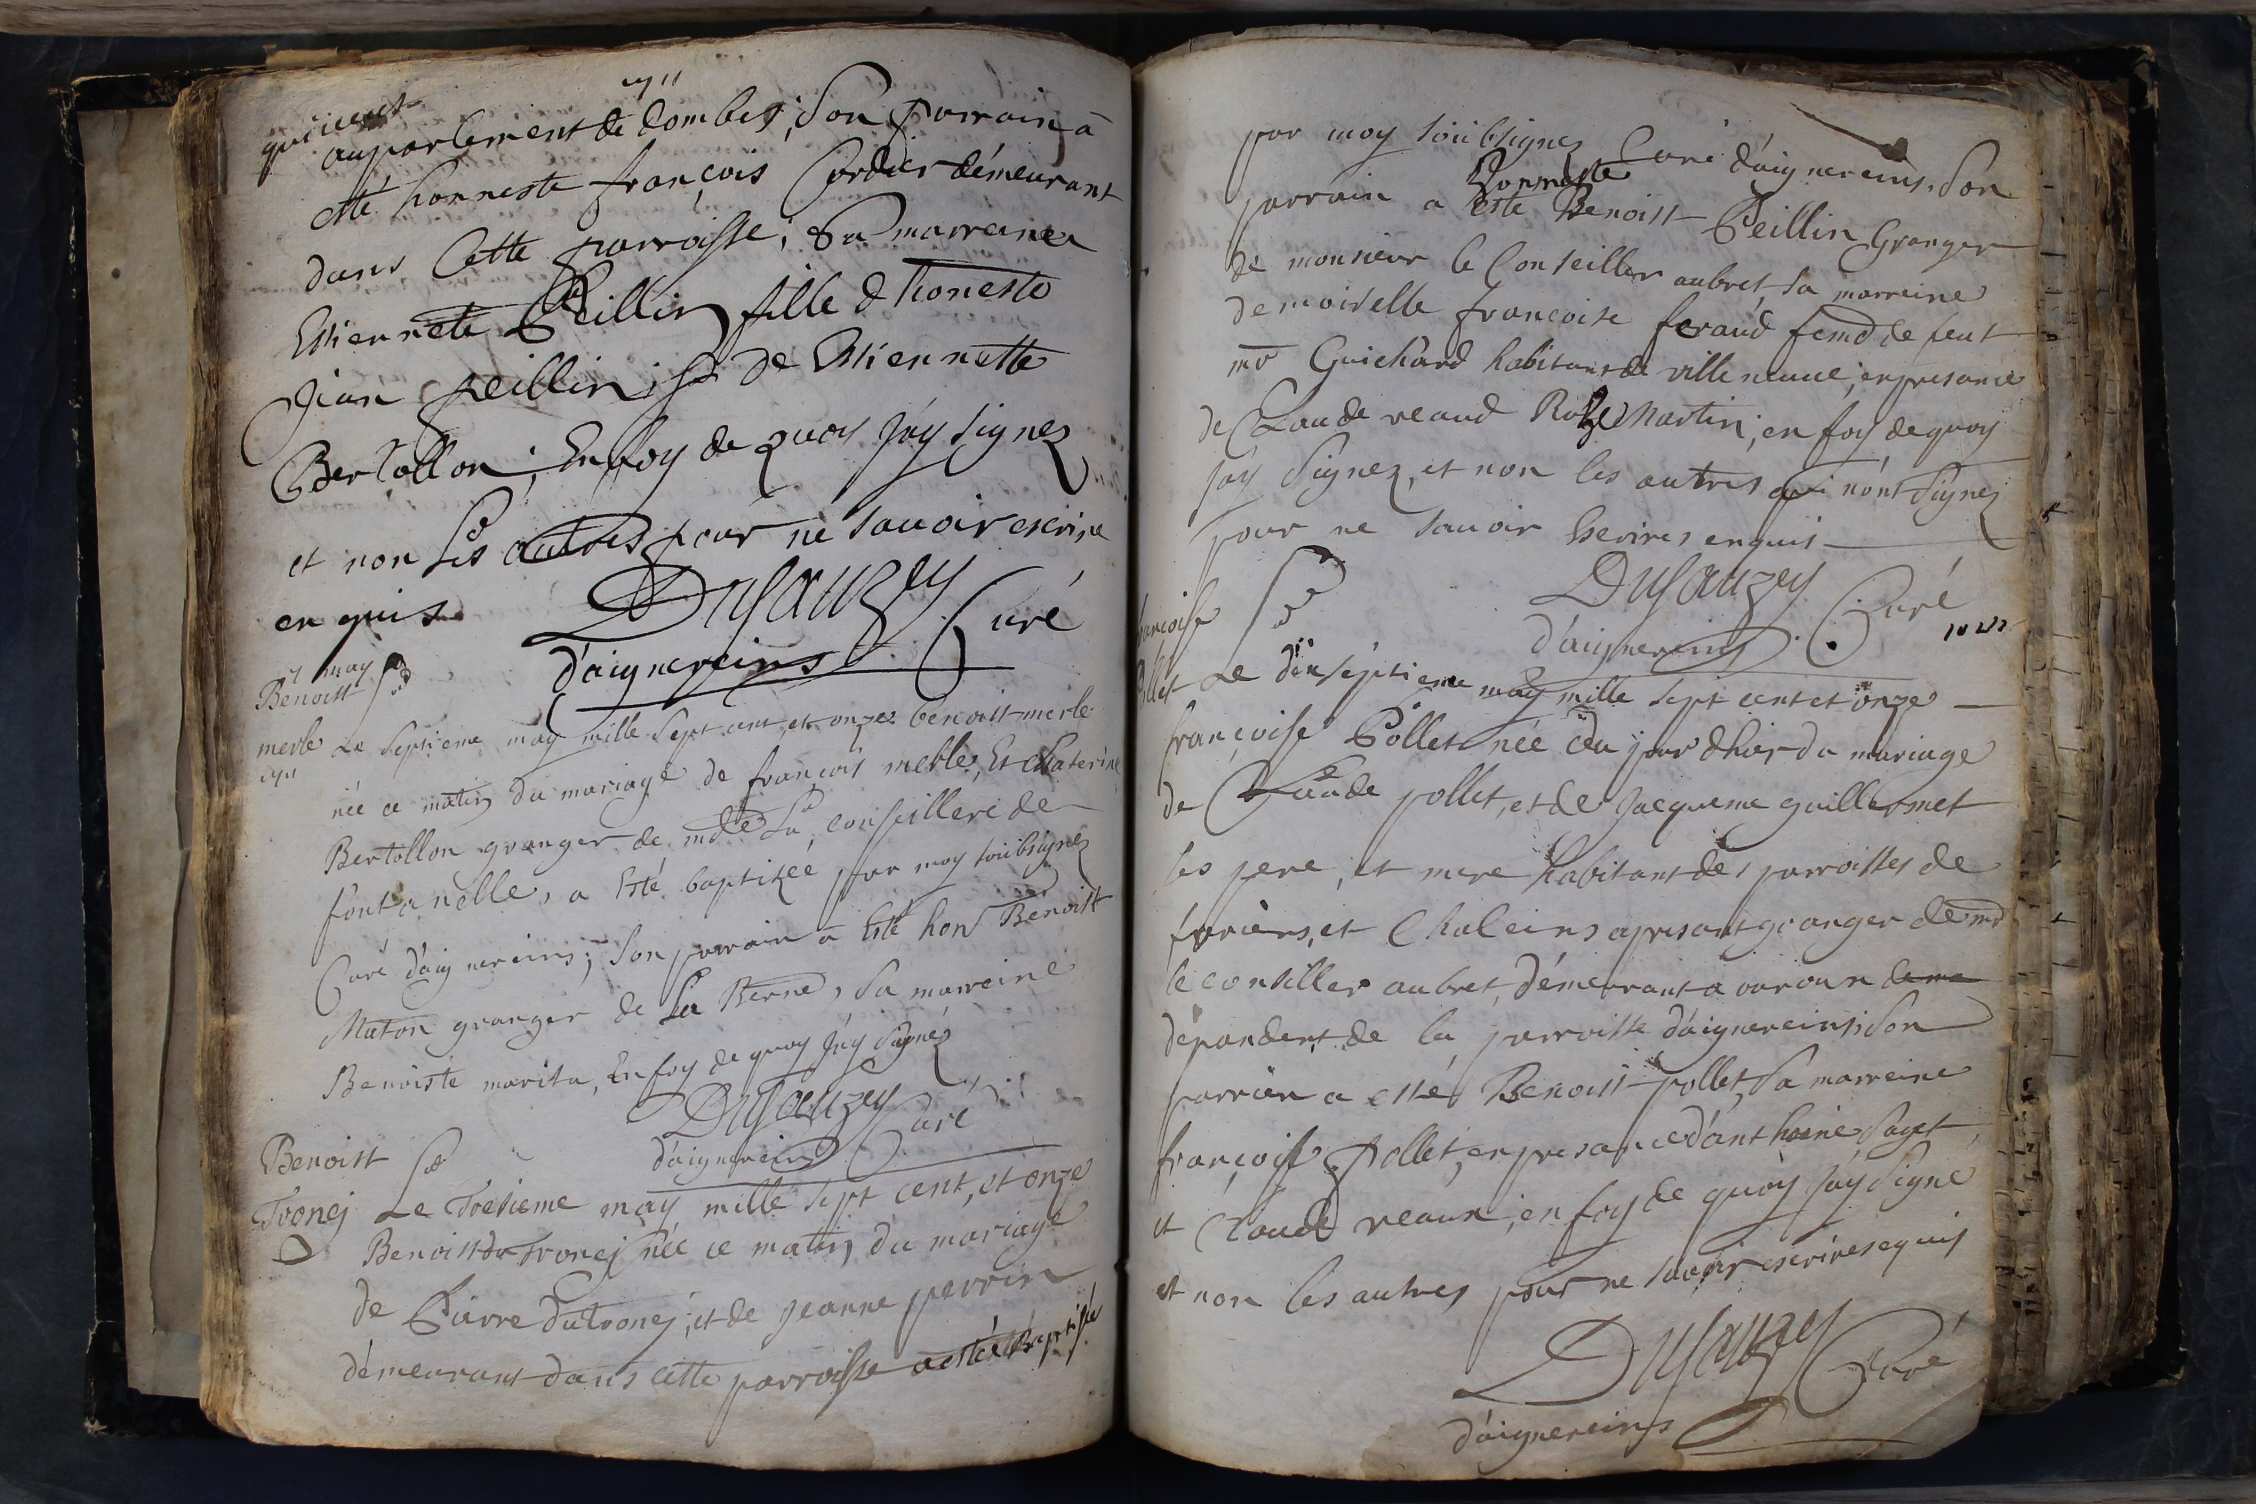 auparlement de dombes, Son parrain a
esté honneste françois Cordier démeurant
dans Cette parroisse, Sa marreine
Estiennete Peillin fille d'honeste
Jean peillin, & de Estiennette
Bertollon, En foy de quoy J'ay signez
et non les autres pour ne sauoir escrire
enquis
DuSauzey Curé
d'aignereins
7 may
Benoist
merle
Le septieme may mille sept cent et onze benoist merle
née ce matin du mariage de françois merle, Et Chaterine
Bertollon granger de mde La conseillere de
fontanelle, a Esté baptizée par moy soubsignez
Curé d'aignereins; Son parrain a Esté hon Benoist
Maton granger de La Berne, Sa marreine
Benoiste morita, En foy de quoy J'ay signéz
DuSauzey Curé
d'aignereins
Benoist
Tronej
Le Tresieme may mille sept cent, et onze
Benoist du Tronej née ce matin du mariage
de Pierre dutronej, et de Jeanne perrin
démeurant dans cette parroisse a esté Baptisée
par moy soubsignez Curé d'aignereins, Son
parrain a esté honneste Benoist Peillin Granger
de monsieur le Conseiller aubret, Sa marreine
demoiselle francoise feraud femd de feut
mo Guichard habitant de ville neuue, en presance
de Claude reaud Roze Martin, en foy de quoy
J'ay Signez, et non les autres qui n'ont Signez
pour ne sauoir Escrires enquis
DuSauzey Curé
d'aignereins
francoise
Pollet
Le dixseptieme may mille sept cent et onze
françoise Pollet née du jour dhier du mariage
de Claude pollet, et de Jacqueme guillermet
les pere, et mere habitant des parroisses de
fariens, et Chaleins apresant granger de mr
le conseller aubret, démeurant a
dépendent de la parroisse d'aignereins, Son
parrain a esté Benoist pollet, Sa marreine
françoise Pollet, en presance d'anthoine Saget
et Claude reaux, en foy de quoy J'ay Signé
et non les autres pour ne sauoir escrires equis
DuSauzey Curé
d'aignereins